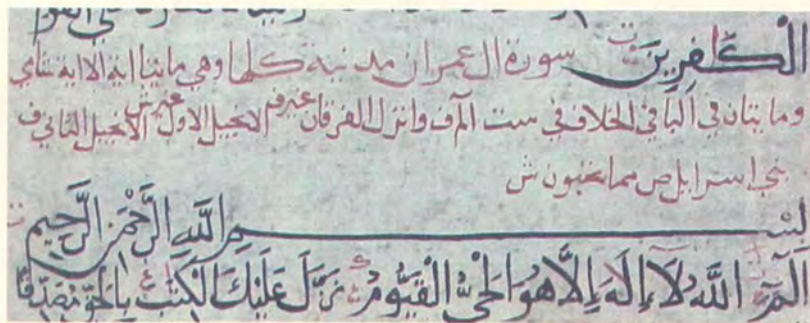 الْكَافِرِينَ سورة ال عمران مدنية كلها وهي مايتا اية الا اية شاي
ومايتان في الباقي الخلاف في ست الم ف وانزل الفرقان غير ف الانجيل الاول غير ش الانجيل الثاني ف
بني اسرايل ص مما تحبون ش
بِسْمِ اللَّهِ الرَّحْمَنِ الرَّحِيمِ
الم اللَّهُ لَا إِلَهَ إِلَّا هُوَ الْحَيُّ الْقَيُّومُ نَزَّلَ عَلَيْكَ الْكِتَبَ بِالْحَقِّ مُصَدِّقًا